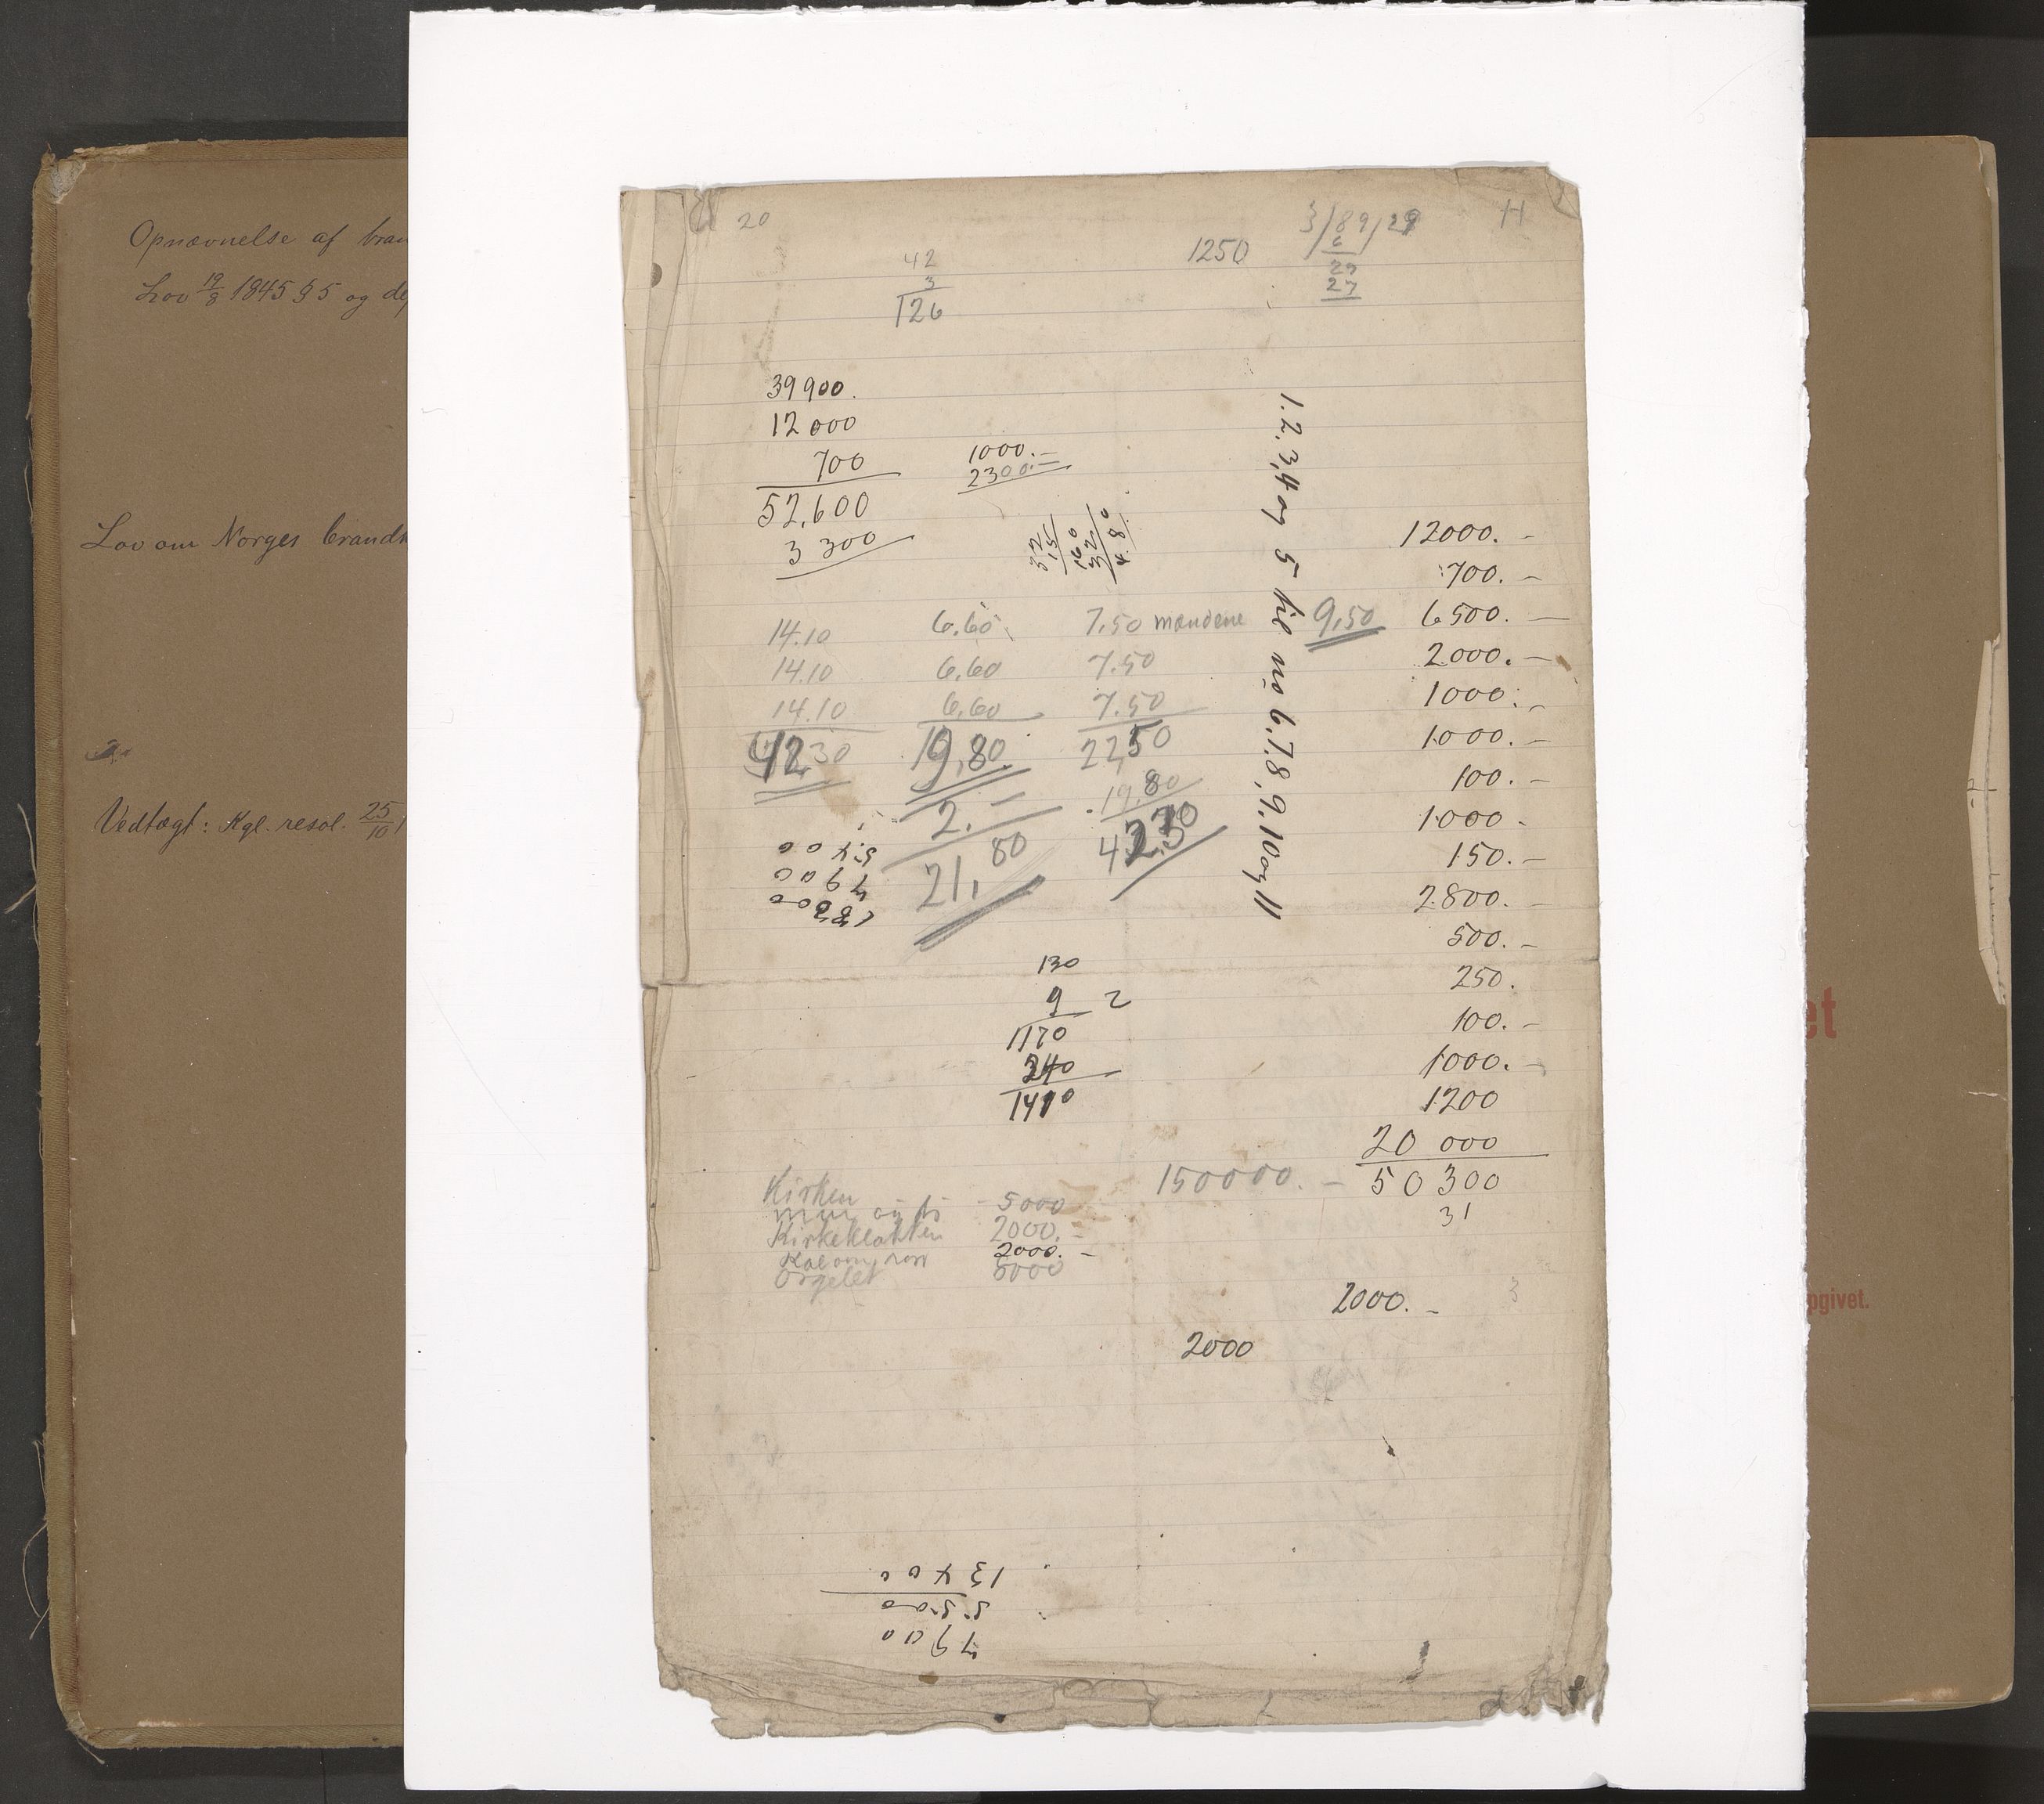 Opnævnelse af bran
Lov 19/8 1845 § 5 og de
Lov om Norges brandk
Vedtægt: Kgl. resol. 25/10 1
et
pgivet.
20
42
3
126
1250
3/89/29
6
29
27
H
39900.
12000
700
52,600
3300
1000.-
2300.-
3,2
1,5
160
32
4.80
14.10
14.10
14.10
42,30
6.60
6.60
6.60
19,80
2.-
21,80
7.50 mændene
7.50
7.50
22,50
19,80
42,30
9,50
1. 2. 3, 4 og 5 til no 6. 7. 8, 9. 10 og 11
5400
7900
12000.-
700.-
6500.-
2000.-
1000.-
1000.-
100.-
1000.-
150.-
2800.-
500.-
250.
100.-
1000.-
1200
20 000
50 300
31
130
9 2
1170
240
1410
150000.-
Kirken
5000
Kirkeklokken 2000.-
2000.-
Orgelet 5000
2000.-
3
2000
7900
5500
13400